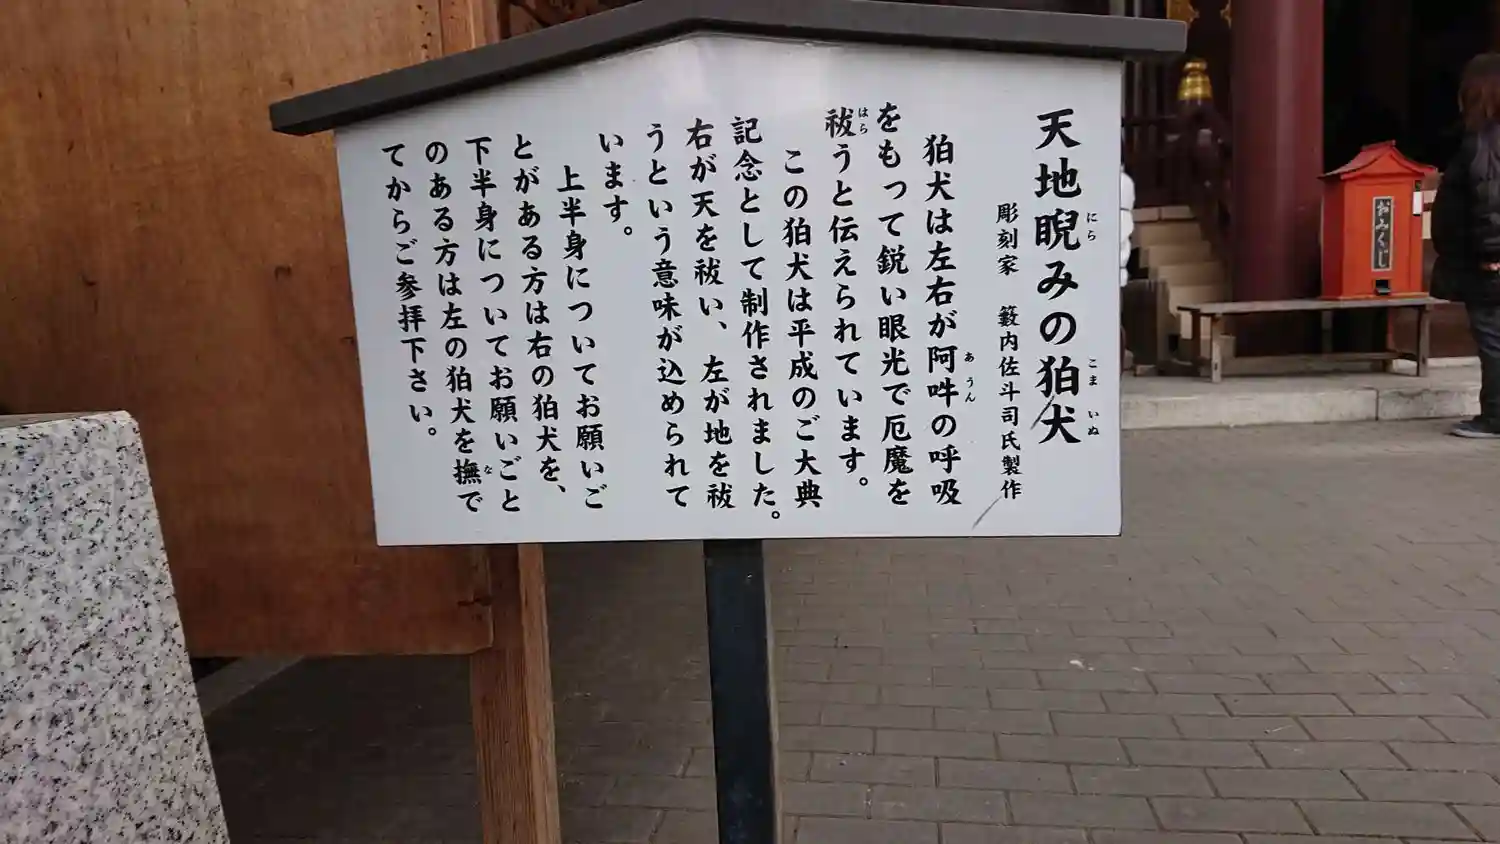 天地睨みの狛犬
にら
こま いぬ
彫刻家 籔内佐斗司氏製作
狛犬は左右が阿吽の呼吸
あ うん
をもって鋭い眼光で厄魔を
祓うと伝えられています。
はら
この狛犬は平成のご大典
記念として制作されました。
右が天を祓い、左が地を祓
うという意味が込められて
います。
上半身についてお願いご
とがある方は右の狛犬を、
下半身についてお願いごと
のある方は左の狛犬を撫で
な
てからご参拝下さい。
おみくじ